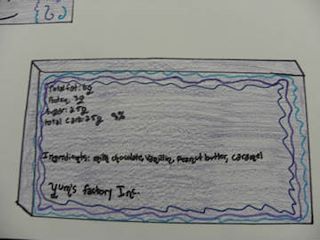 Total fat: 8g
Protein: 3g
Sugar: 25g
total carb: 25g 9%
Ingredients: milk chocolate, vanillin, peanut butter, caramel
Yum's factory Inc.